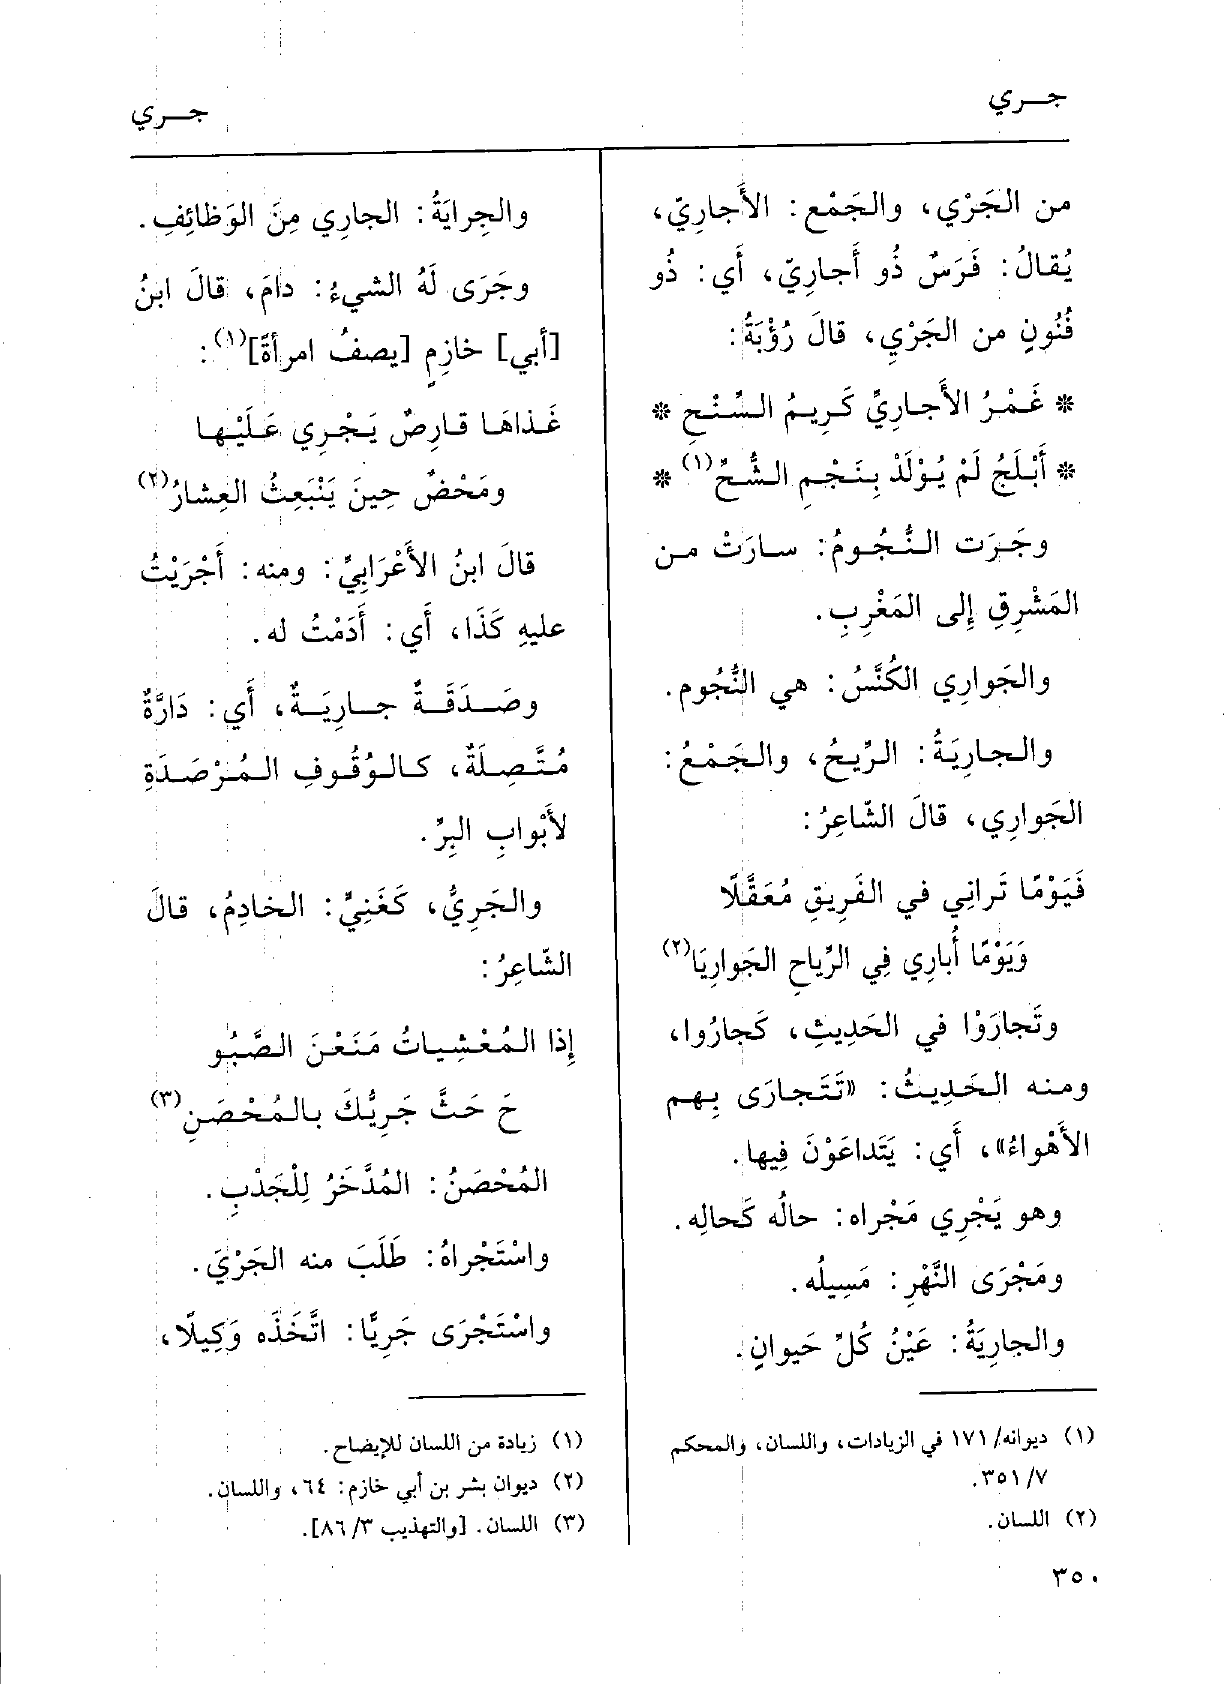 جـــري
جـــري
من الجَرْي، والجَمْع: الأَجارِيّ،
يُقالُ: فَرَسٌ ذُو أَجارِيّ، أَي: ذُو
فُنُونٍ من الجَرْيِ، قالَ رُؤْبَةُ:
* غَمْرُ الأَجارِيِّ كَرِيمُ السِّنْحِ *
* أَبْلَجُ لَمْ يُوْلَدْ بِنَجْمِ الشُّحِّ(١) *
وجَرَت النُّجُومُ: سارَتْ من
المَشْرِقِ إِلى المَغْرِبِ.
والجَوارِي الكُنَّسُ: هي النُّجُوم.
والجارِيَةُ: الرِّيحُ، والجَمْعُ:
الجَوارِي، قالَ الشّاعِرُ:
فَيَوْمًا تَرانِي في الفَرِيقِ مُعَقَّلًا
وَيَوْمًا أُبارِي فِي الرِّياحِ الجَوارِيَا(٢)
وتَجارَوْا في الحَدِيثِ، كَجارُوا،
ومنه الحَدِيثُ: «تَتَجارَى بِهم
الأَهْواءُ»، أَي: يَتَداعَوْنَ فِيها.
وهو يَجْرِي مَجْراه: حالُه كَحالِه.
ومَجْرَى النَّهْرِ: مَسِيلُه.
والجارِيَةُ: عَيْنُ كُلِّ حَيوانٍ.
(١) ديوانه/ ١٧١ في الزيادات، واللسان، والمحكم
٧/ ٣٥١.
(٢) اللسان.
والجِرايَةُ: الجارِي مِنَ الوَظائِفِ.
وجَرَى لَهُ الشيءُ: دامَ، قالَ ابنُ
[أبي] خازِمٍ [يصفُ امرأةً](١):
غَذاهَا قارِصٌ يَجْرِي عَلَيْها
ومَحْضٌ حِينَ يَنْبَعِثُ العِشارُ(٢)
قالَ ابنُ الأَعْرَابِيِّ: ومنه: أَجْرَيْتُ
عليهِ كَذَا، أَي: أَدَمْتُ له.
وصَدَقَةٌ جارِيَةٌ، أَي: دَارَّةٌ
مُتَّصِلَةٌ، كالوُقُوفِ المُرْصَدَةِ
لأَبْوابِ البِرِّ.
والجَرِيُّ، كَغَنِيٍّ: الخادِمُ، قالَ
الشّاعِرُ:
إِذا المُعْشِياتُ مَنَعْنَ الصَّبُو
حَ حَثَّ جَرِيُّكَ بالمُحْصَنِ(٣)
المُحْصَنُ: المُدَّخَرُ لِلْجَدْبِ.
واسْتَجْراهُ: طَلَبَ منه الجَرْيَ.
واسْتَجْرَى جَرِيًّا: اتَّخَذَه وَكِيلًا،
(١) زيادة من اللسان للإيضاح.
(٢) ديوان بشر بن أبي خازم: ٦٤، واللسان.
(٣) اللسان. [والتهذيب ٣/ ٨٦].
٣٥٠